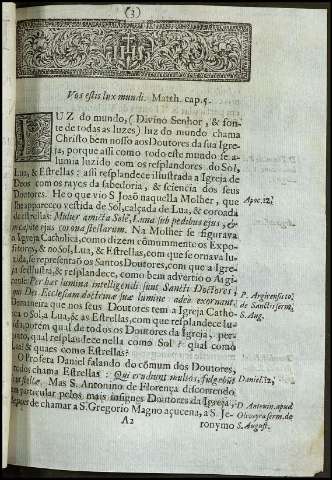 (3)
Vos estis lux mundi. Matth. cap. 5.
LUZ do mundo, (Divino Senhor, & fon-
te de todas as luzes) luz do mundo chama
Christo bem nosso aos Doutores da sua Igre-
ja, porque assi como todo este mundo se a-
lumia luzido com os resplandores do Sol,
Lua, & Estrellas: assi resplandece illustrada a Igreja de
Deos com os rayes da sabedoria, & sciencia dos seus
Doutores. He o que vio S Joaõ naquella Molher, que
lhe appareceo vestida de Sol, calçada de Lua, & coroada
de estrellas: Mulier amicta Sole, Luna sub pedibus ejus, &
in capite ejus corona stellarum. Na Molher se figurava
a Igreja Catholica, como dizem cõmummente os Expo-
sitores, & no Sol, Lua, & Estrellas, com que se ornava lu-
zida, se representaõ os Santos Doutores, com que a Igre-
ja se illustra, & resplandece, como bem advertio o Argi-
Per hæc lumina intelligendi sunt Sancti Doctores,
Dei Ecclesiam doctrinæ suæ lumine adeò exornant.
De maneira que nos seus Doutores tem a Igreja Catho-
lica o Sol, a Lua, & as Estrellas, com que resplandece lu-
porem qual de todos os Doutores da Igreja, per-
gunto, qual resplandece nella como Sol? qual como
& quaes como Estrellas?
O Profeta Daniel falando do cõmum dos Doutores,
todos chama Estrellas: Qui erudiunt multos, fulgebunt
stellæ. Mas S. Antonino de Florença discorrendo
em particular pelos mais insignes Doutores da Igreja,
depois de chamar a S. Gregorio Magno açucena, a S. Je-
A2 ronymo
Apoc. 12.
P. Argirensi to.
de Sanct. serm.
S. Aug.
Daniel. 12.
D Antonin. apud
serm. de
S. August.